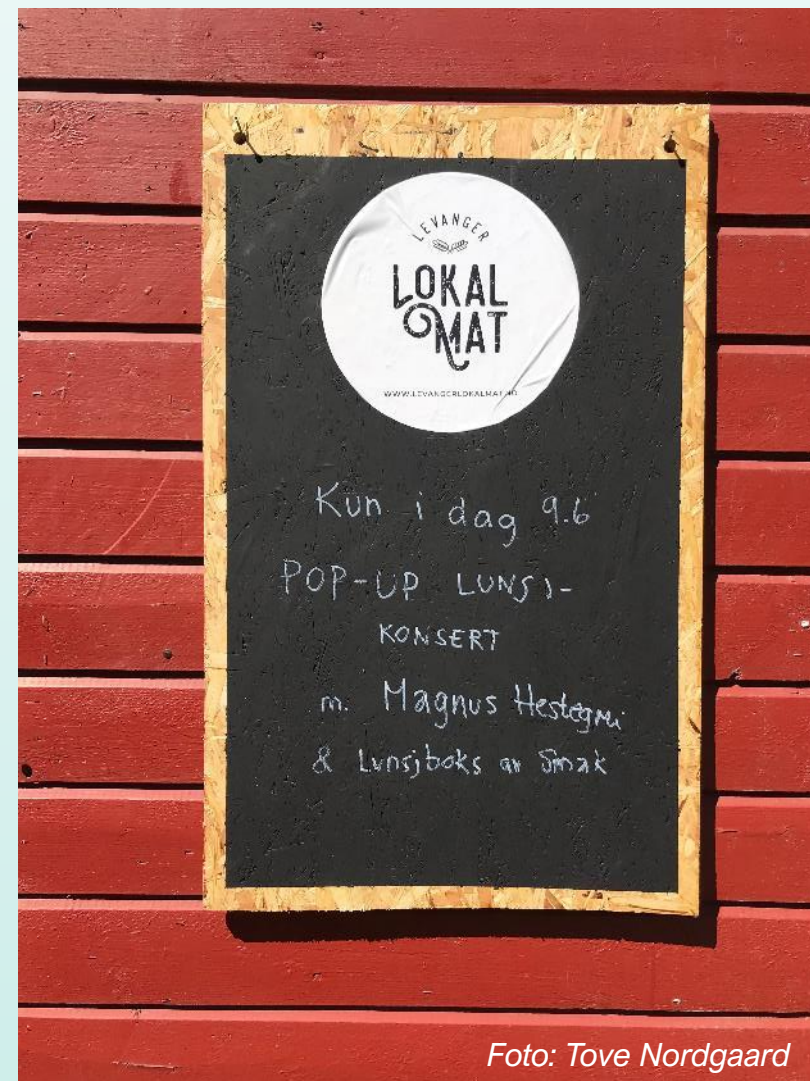 LEVANGER
LOKAL
MAT
WWW.LEVANGERLOKALMAT.NO
Kun i dag 9.6
POP-UP LUNSJ-
KONSERT
m. Magnus
& Lunsjboks av Smak
Foto: Tove Nordgaard